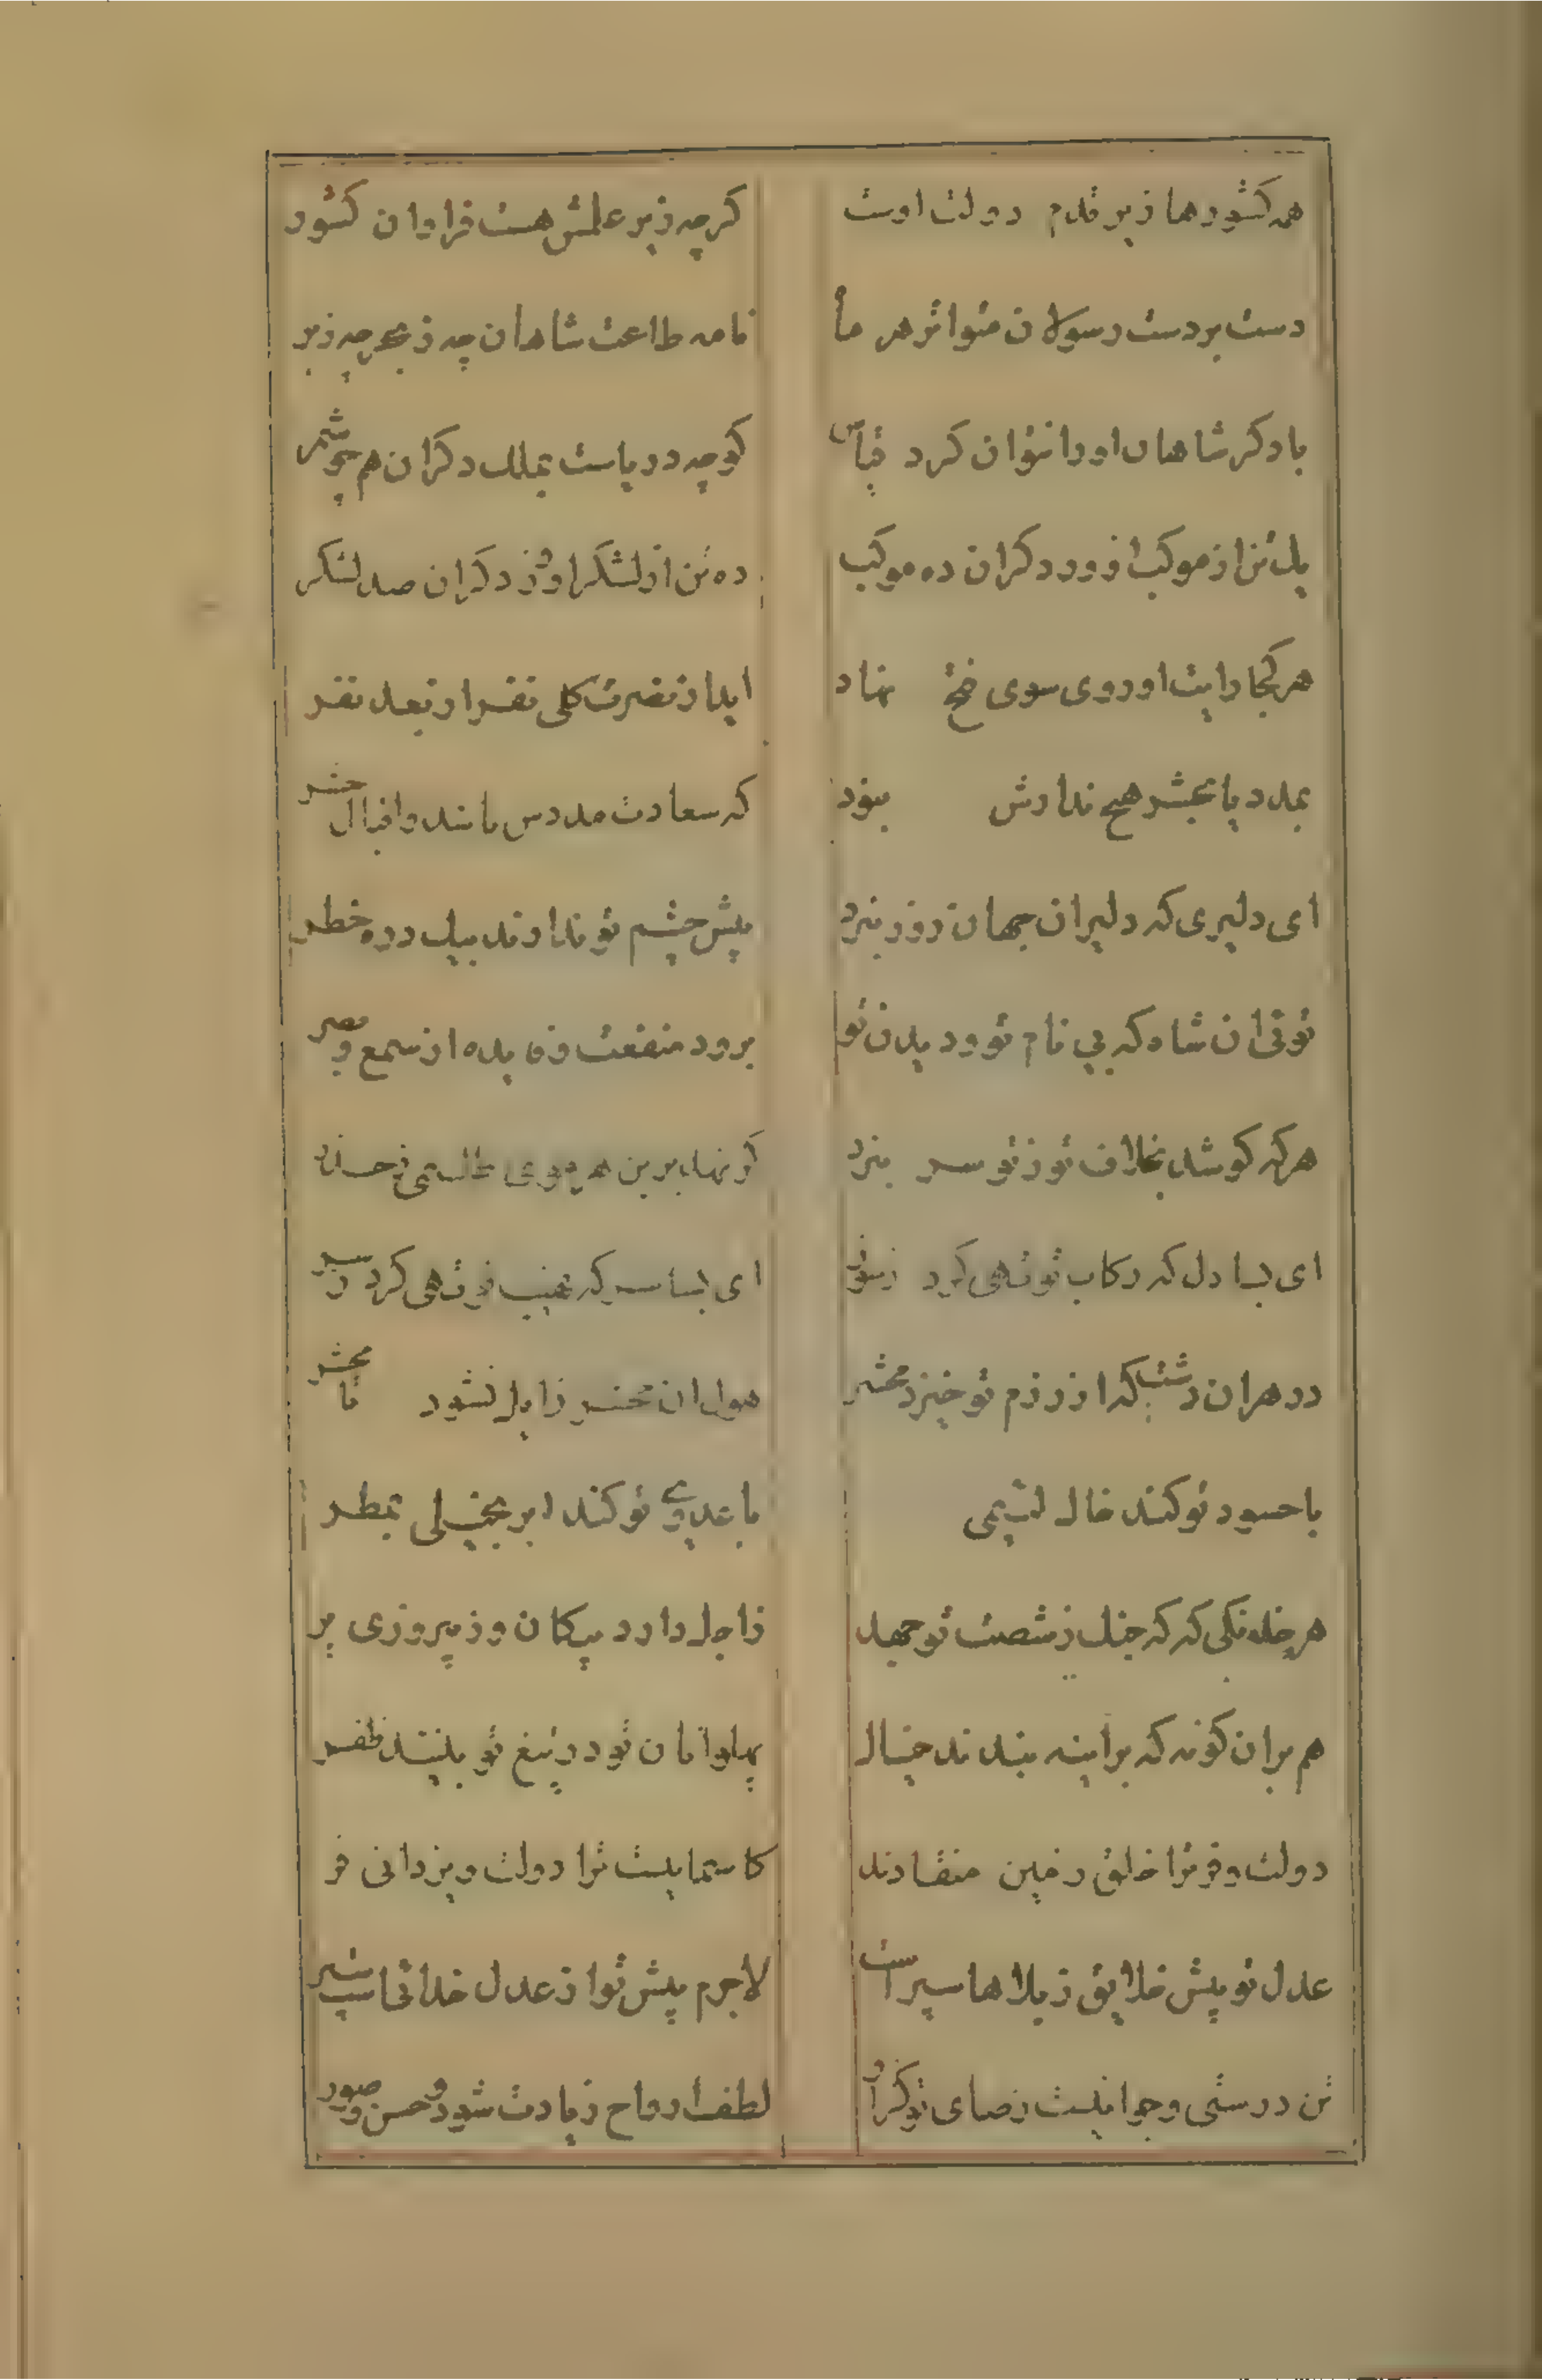 همه کشورها زیر قدم دولت اوست
کرچه زیر علمش هست فراوان کشور
دست بر دست رسولان متواتر هر ماه
نامه طاعت شاهان چه ز بحر چه ز بر
با دکر شاهان او را نتوان کرد قیاس
کو چه دریاست بملک دکران همچو شمر
یک تن از موکب او ور دکران ده موکب
ده تن از لشکر او وز دکران صد لشکر
هر کجا رایت او روی سوی فتح نهاد
اید از نصرت کلی نفر از بعد نفر
بمدد یا بحشر هیچ نیازش نبود
که سعادت مددس باشد و اقبال حشر
ای دلیری که دلیران جهان روز نبرد
پیش چشم تو ندارند بیک ذره خطر
توئی ان شاه که بی نام تو و دیدن تو
برود منفعت و فایده از سمع و بصر
هرکه کوشد بخلاف تو ز تو سر نبرد
ای بسا دل که رکاب تو همی کرد
ای بسا سر که همی کرد
در هر ان دشت که از رزم تو خیزد محشر
هول ان محشر زایل نشود تا محشر
با حسود تو کند خاک لئیمی
با عدوی تو کند ابر بخیلی بمطر
هر خدنکی که که جنک ز شصت تو جهد
ز اجل دارد پیکان و ز پیروزی پر
هم بران کونه که بر اینه بندند خیال
پهلوانان تو در تیغ تو بینند ظفر
دولت و فر ترا خلق زمین منقادند
کاسمانیست ترا دولت و یزدانی فر
عدل تو پیش خلایق ز بلاها سپر است
لاجرم پیش تو از عدل خدائی است سپر
تن درستی و جوانیست رضای تو کزو
لطف ارواح زیادت شود و حسن و صور